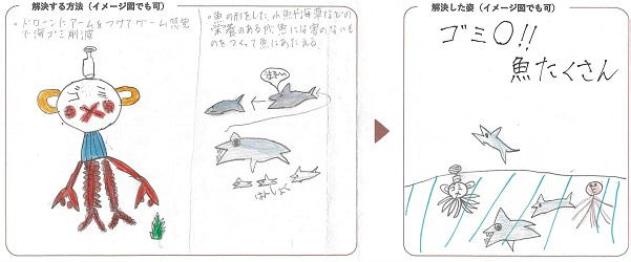 解決する方法（イメージ図でも可）
・ドローンにアームをつけてゲーム感覚
で海ゴミ削減
・魚の形をした、小魚や海藻などの
栄養のある、魚には害のないも
のをつくって魚にあたえる
はんしょく
解決した姿（イメージ図でも可）
ゴミ〇!!
魚たくさん